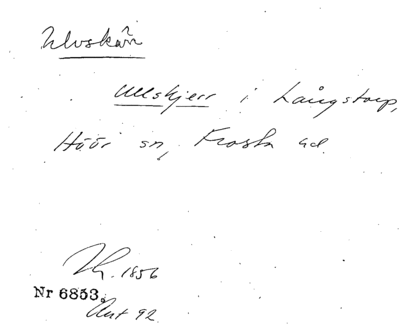 Ulvskärr
Ullskjerr i Långstorp,
Höör sn, Frosta hd.
1856
Nr 6853.
Ant 92